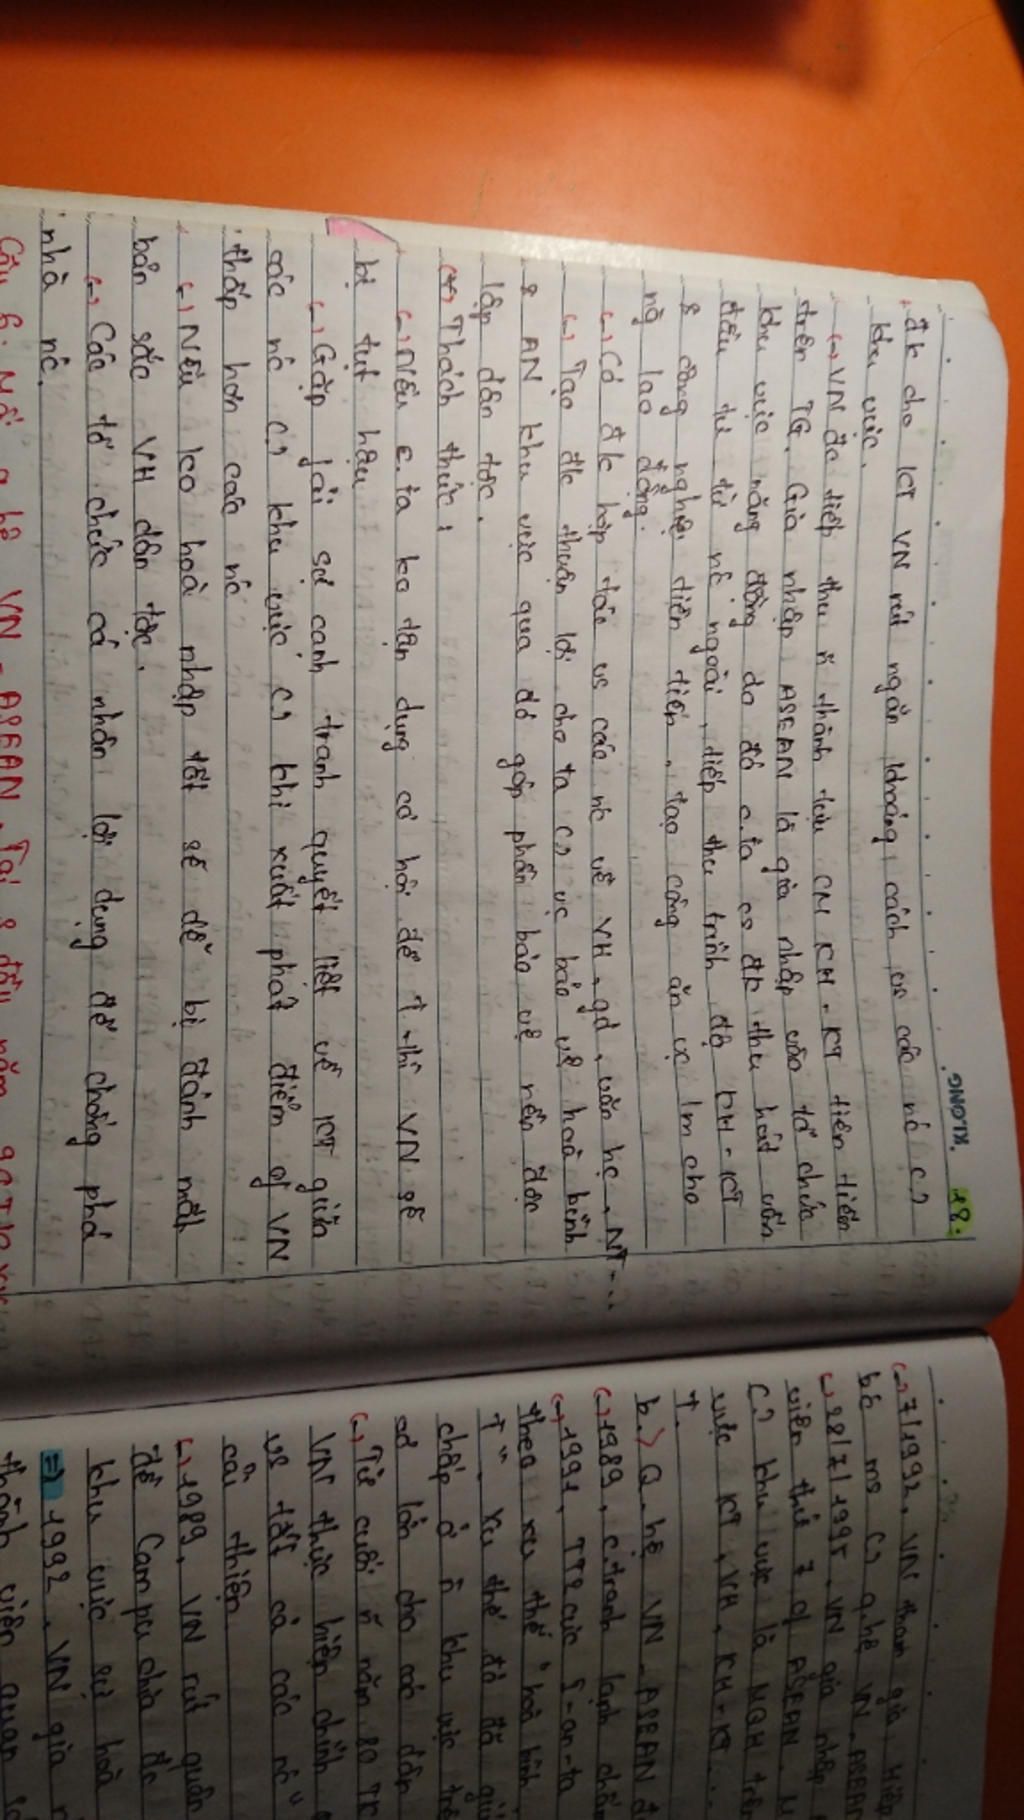 KLONG.
18.
đk cho KT VN rút ngắn khoảng cách vs các nc
khu vực.
VN đc tiếp thu ~ thành tựu CM KH - KT tiên tiến
trên TG. Gia nhập ASEAN là gia nhập vào tổ chức
khu vực năng động do đó c.ta cs đk thu hút vốn
đầu tư từ nc ngoài, tiếp thu trình độ KH - KT
& công nghệ tiên tiến, tạo công ăn vc lm cho
ng lao động.
Có đk hợp tác vs các nc về VH, gd, văn hc, NT...
Tạo đk thuận lợi cho ta vc bảo vệ hoà bình
& AN khu vực qua đó góp phần bảo vệ nền độc
lập dân tộc.
(*) Thách thức:
Nếu c.ta ko tận dụng cơ hội để thì VN sẽ
bị tụt hậu
Gặp fải sự cạnh tranh quyết liệt về KT giữa
các nc khu vực khi xuất phát điểm of VN
thấp hơn các nc
Nếu ko hoà nhập tốt sẽ dễ bị đánh mất
bản sắc VH dân tộc.
Các tổ chức cá nhân lợi dụng để chống phá
nhà nc.
VN - ASEAN. Tại
7/1992, VN tham gia Hiệp
ms q.hệ VN - ASEA
28/7/1995. VN gia nhập
viên thứ 7 of ASEAN.
khu vực là MQH trên
vực KT, VH, KH - KT...
b.> Q.hệ VN - ASEAN đ
1989, c.tranh lạnh chấm
1991, TT 2 cực I-an-ta
theo xu thế "hoà bình
Xu thế đó đã giú
chấp ở ~ khu vực
cơ lớn cho các dân
Từ cuối ~ năm 80 TK
VN thực hiện chính
vs tất cả các nc
cải thiện
1989, VN rút quân
đề Campuchia đc
khu vực sự hoà
=> 1992, VN gia
thành viên quan